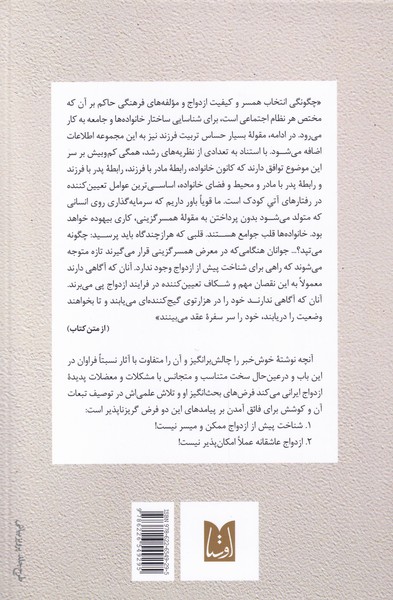 «چگونگی انتخاب همسر و کیفیت ازدواج و مؤلفه‌های فرهنگی حاکم بر آن که
مختص هر نظام اجتماعی است، برای شناسایی ساختار خانواده‌ها و جامعه به کار
می‌رود. در ادامه، مقولهٔ بسیار حساس تربیت فرزند نیز به این مجموعه اطلاعات
اضافه می‌شود. با استناد به تعدادی از نظریه‌های رشد، همگی کم‌وبیش بر سر
این موضوع توافق دارند که کانون خانواده، رابطهٔ مادر با فرزند، رابطهٔ پدر با فرزند
و رابطهٔ پدر با مادر و محیط و فضای خانواده، اساسی‌ترین عوامل تعیین‌کننده
در رفتارهای آتی کودک است. ما قویاً باور داریم که سرمایه‌گذاری روی انسانی
که متولد می‌شود بدون پرداختن به مقولهٔ همسرگزینی، کاری بیهوده خواهد
بود. خانواده‌ها قلب جوامع هستند. قلبی که هرازچندگاه باید پرسید: چگونه
می‌تپد؟... جوانان هنگامی‌که در معرض همسرگزینی قرار می‌گیرند تازه متوجه
می‌شوند که راهی برای شناخت پیش از ازدواج وجود ندارد. آنان که آگاهی دارند
معمولاً به این نقصان مهم و شکاف تعیین‌کننده در فرایند ازدواج پی می‌برند.
آنان که آگاهی ندارند خود را در هزارتوی گیج‌کننده‌ای می‌یابند و تا بخواهند
وضعیت را دریابند، خود را سر سفرهٔ عقد می‌بینند»
(از متن کتاب)
آنچه نوشتهٔ خوش‌خبر را چالش‌برانگیز و آن را متفاوت با آثار نسبتاً فراوان در
این باب و درعین‌حال سخت متناسب و متجانس با مشکلات و معضلات پدیدهٔ
ازدواج ایرانی می‌کند فرض‌های بحث‌انگیز او و تلاش علمی‌اش در توصیف تبعات
آن و کوشش برای فائق آمدن بر پیامدهای این دو فرض گریزناپذیر است:
۱. شناخت پیش از ازدواج ممکن و میسر نیست!
۲. ازدواج عاشقانه عملاً امکان‌پذیر نیست!
ISBN 978-622-6549-29-5
9786226549295